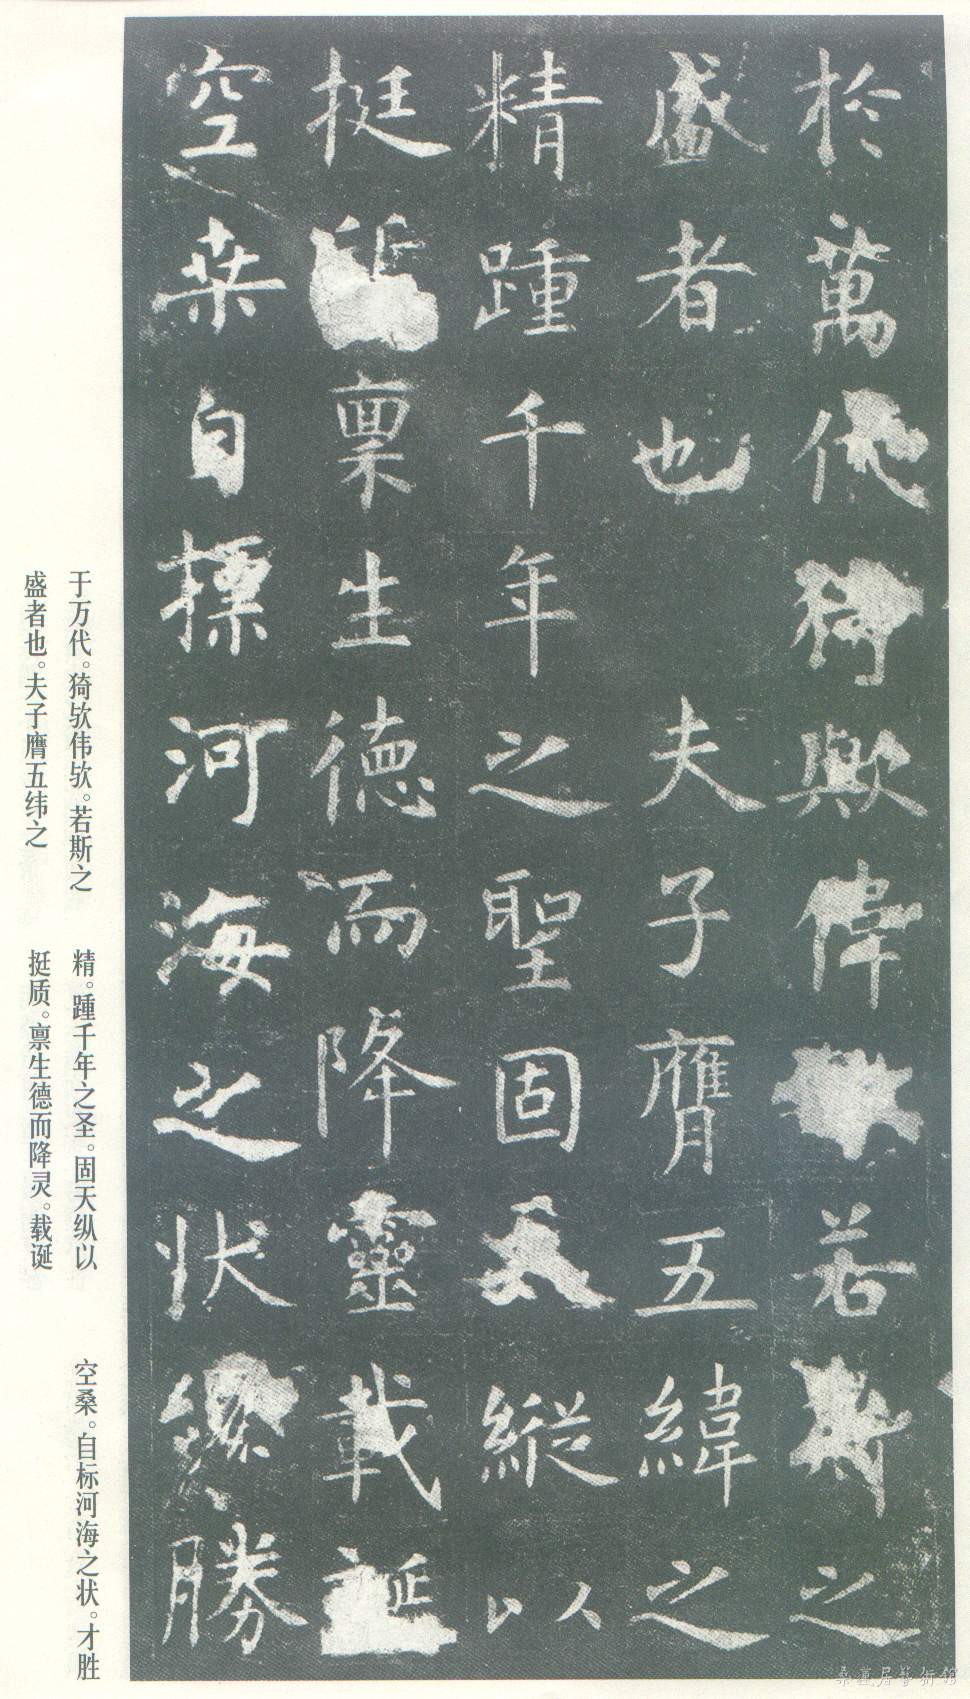 於萬代猗歟偉若斯之
盛者也夫子膺五緯之
精踵千年之聖固天縱以
挺稟生德而降靈載誕
空桒自摽河海之狀纔勝
于万代。猗欤伟欤。若斯之
盛者也。夫子膺五纬之
精。踵千年之圣。固天纵以
挺质。禀生德而降灵。载诞
空桑。自标河海之状。才胜
桑蓮居藝術館